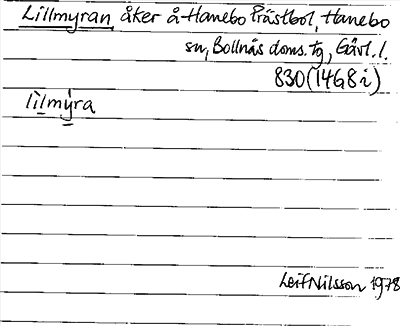 Lillmyran, åker å Hanebo Prästbol, Hanebo
sn, Bollnäs doms. tg, Gävl. l.
830 (14G8i)
lìlmýra
Leif Nilsson 1978